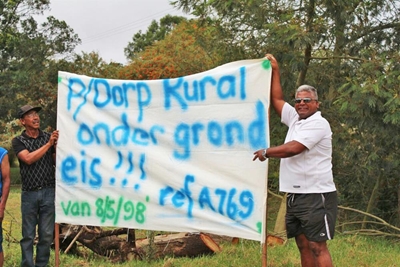 P/Dorp Kural
onder grond
eis!!!
ref A769
van 8/5/98'